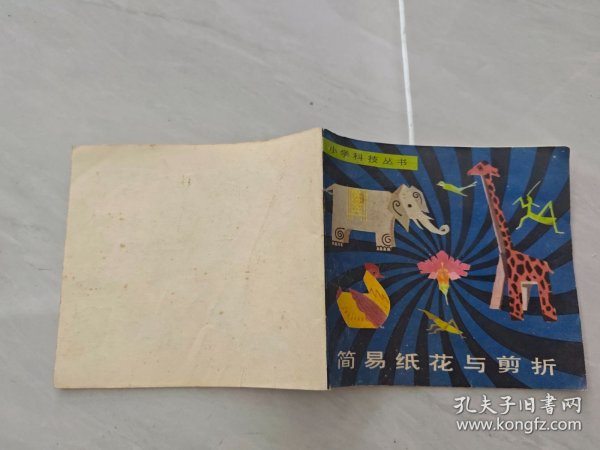 小学科技丛书
简易纸花与剪折
孔夫子旧書网
www.kongfz.com